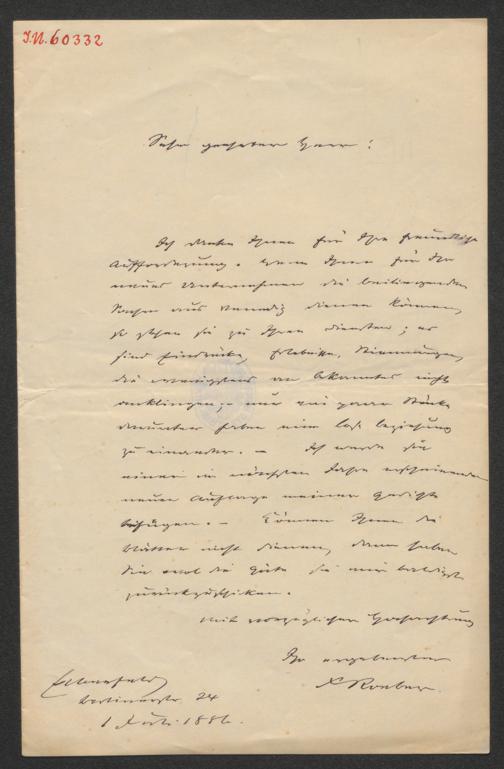 I.N. 60332
Sehr geehrter Herr:
Ich danke Ihnen für Ihre freundliche
Aufforderung. Wenn Ihnen für Ihr
neues Unternehmen die beiliegenden
Sachen aus Venedig dienen können,
so stehen sie zu Ihren Diensten; es
sind Eindrücke, Erlebnisse, Stimmungen,
die wenigstens an Bekanntes nicht
anklingen; nur ein paar Stücke
darunter haben eine lose Beziehung
zu einander. – Ich werde sie
einer im nächsten Jahre erscheinenden
neuen Auflage meiner Gedichte
beifügen. – Können Ihnen die
Blätter nicht dienen, dann haben
Sie wol die Güte sie mir baldigst
zurückzuschicken.
Mit vorzüglicher Hochachtung
Ihr ergebenster
F. Roeber.
Elberfeld
Berlinerstr. 24
1886.